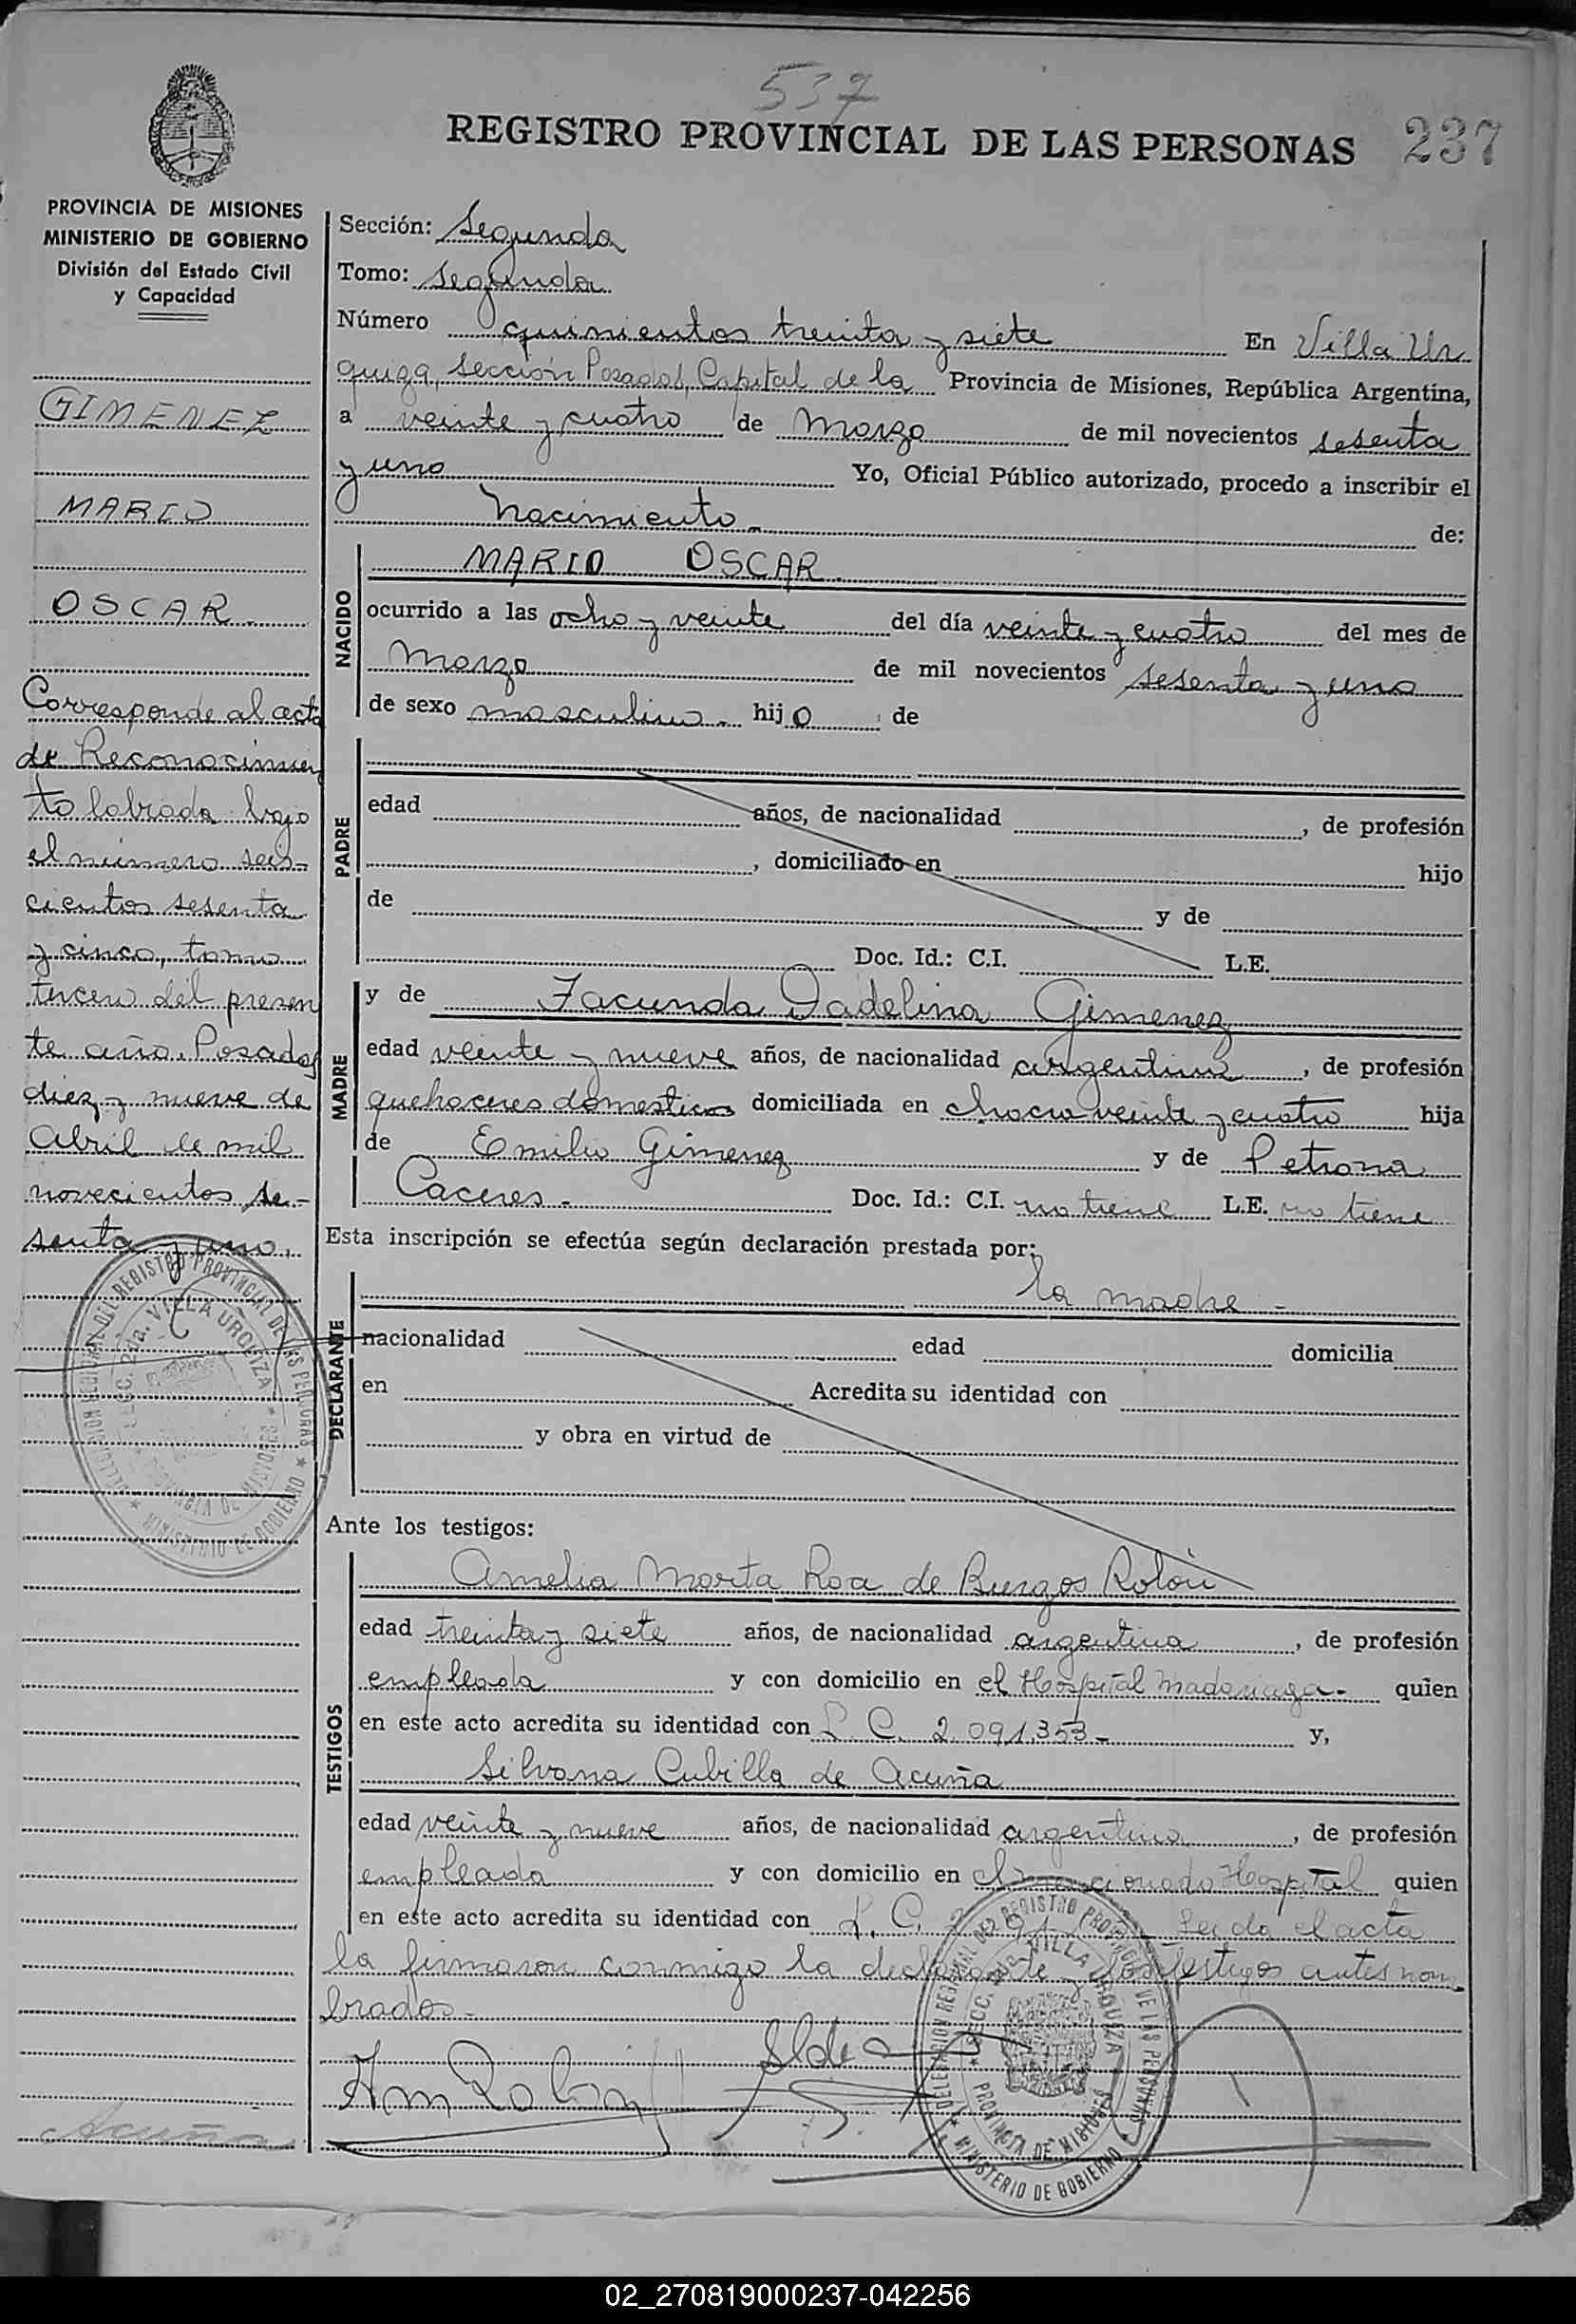 537
REGISTRO PROVINCIAL DE LAS PERSONAS 237
PROVINCIA DE MISIONES
MINISTERIO DE GOBIERNO
División del Estado Civil
y Capacidad
GIMENEZ
MARIO
OSCAR.
Corresponde al acta
de Reconocimien
to labrada bajo
el número seis-
cientos sesenta
y cinco, tomo
tercero del presen
te año. Posadas
diez y nueve de
Abril de mil
novecientos se-
senta y uno.
Acuña
Sección: Segunda
Tomo: Segunda
Número quinientos treinta y siete En Villa Ur
quiza, Sección Posadas, Capital de la Provincia de Misiones, República Argentina,
a veinte y cuatro de Marzo de mil novecientos sesenta
y uno Yo, Oficial Público autorizado, procedo a inscribir el
Nacimiento de:
NACIDO
MARIO OSCAR
ocurrido a las ocho y veinte del día veinte y cuatro del mes de
Marzo de mil novecientos sesenta y uno
de sexo masculino hijo de
PADRE
edad años, de nacionalidad , de profesión
, domiciliado en hijo
de y de
Doc. Id.: C.I. L.E.
MADRE
y de Facunda Gimenez
edad veinte y nueve años, de nacionalidad argentina, de profesión
quehaceres domesticos domiciliada en chacra veinte y cuatro hija
de Emilio Gimenez y de Petrona
Caceres Doc. Id.: C.I. no tiene L.E. no tiene
Esta inscripción se efectúa según declaración prestada por:
la madre
DECLARANTE
nacionalidad edad domicilia
en Acredita su identidad con
y obra en virtud de
Ante los testigos:
TESTIGOS
Amelia Marta Roa de Burgos Rolón
edad treinta y siete años, de nacionalidad argentina, de profesión
empleada y con domicilio en el Hospital Madariaga- quien
en este acto acredita su identidad con L. C. 2.091.353- y,
Silvana Cubilla de Acuña
edad veinte y nueve años, de nacionalidad argentina, de profesión
empleada y con domicilio en el Hospital quien
en este acto acredita su identidad con L. C. Leida el acta
la firmaron conmigo la declarante y los testigos antes nom
brados.-
DELEGACION REGIONAL DEL REGISTRO PROVINCIAL DE LAS PERSONAS
MINISTERIO DE GOBIERNO
SECC. 2da. VILLA URQUIZA
PROVINCIA DE MISIONES
DELEGACION REGIONAL DEL REGISTRO PROVINCIAL DE LAS PERSONAS
MINISTERIO DE GOBIERNO
VILLA URQUIZA
PROVINCIA DE MISIONES
02_270819000237-042256